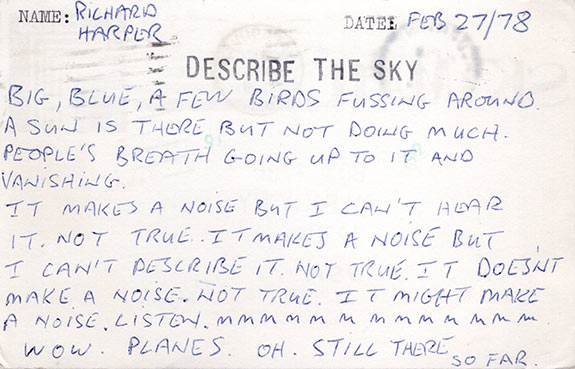 NAME: RICHARD
HARPER
DATE: FEB 27/78
DESCRIBE THE SKY
BIG, BLUE, A FEW BIRDS FUSSING AROUND.
A SUN IS THERE BUT NOT DOING MUCH.
PEOPLE'S BREATH GOING UP TO IT AND
VANISHING.
IT MAKES A NOISE BUT I CAN'T HEAR
IT. NOT TRUE. IT MAKES A NOISE BUT
I CAN'T DESCRIBE IT. NOT TRUE. IT DOESN'T
MAKE A NOISE. NOT TRUE. IT MIGHT MAKE
A NOISE. LISTEN. M M M M M M M M M M M M.
WOW. PLANES. OH. STILL THERE SO FAR.